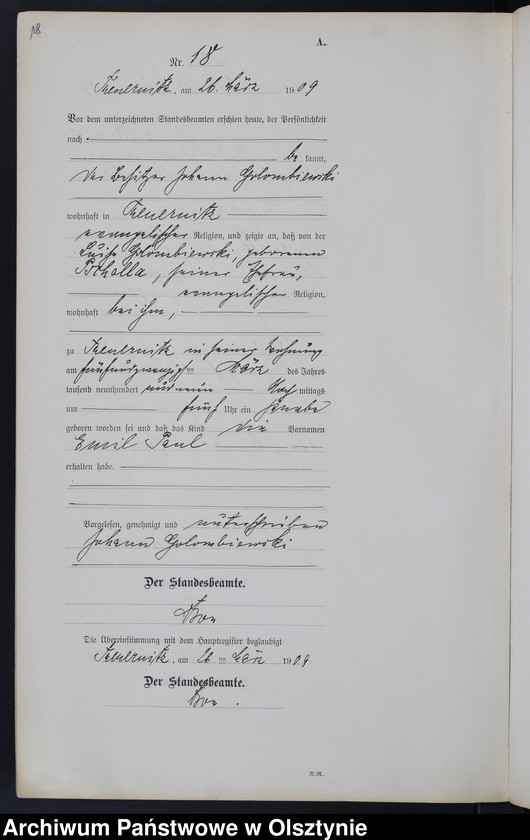 18
A.
Nr. 18
am 26. März 1909
Vor dem unterzeichneten Standesbeamten erschien heute, der Persönlichkeit
nach
be kannt,
der Besitzer Johann Golombiewski
wohnhaft in
evangelischer Religion, und zeigte an, daß von der
Luise Golombiewski, geborenen
seiner Ehefrau,
evangelischer Religion,
wohnhaft bei ihm,
zu in seiner Wohnung
am fünfundzwanzigsten März des Jahres
tausend neunhundert und neun Nach mittags
um fünf Uhr ein Knabe
geboren worden sei und daß das Kind die Vornamen
Emil Paul
erhalten habe.
Vorgelesen, genehmigt und unterschrieben
Johann Golombiewski
Der Standesbeamte.
Die Übereinstimmung mit dem Hauptregister beglaubigt
am 26 ten März 1909
Der Standesbeamte.
R.-R.
Archiwum Państwowe w Olsztynie